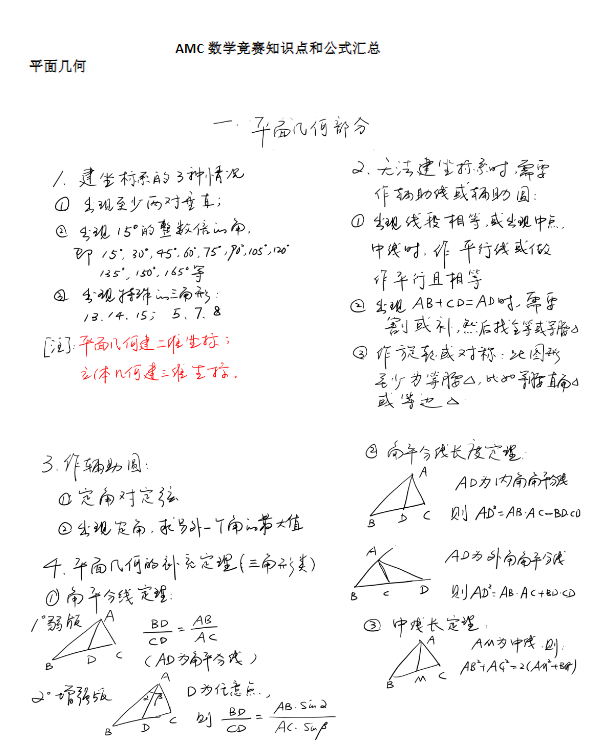 AMC 数学竟赛知识点和公式汇总
平面几何
一. 平面几何部分
1. 建坐标系的3种情况
① 出现至少两对垂直;
② 出现15°的整数倍的角,
即 15°, 30°, 45°, 60°, 75°, 90°, 105°, 120°
135°, 150°, 165° 等
③ 出现特殊的三角形:
13. 14. 15; 5. 7. 8
[注]: 平面几何建二维坐标;
立体几何建三维坐标.
2. 无法建坐标系时, 需要
作辅助线或辅助圆:
① 出现线段相等, 或出现中点,
中线时, 作平行线或做
作平行且相等
② 出现 AB+CD=AD时, 需要
割或补, 然后找全等或等腰△
③ 作旋转或对称: 此图形
至少为等腰△, 比如等腰直角△
或等边△
3. 作辅助圆:
① 定角对定弦
② 出现定角, 求另外一个角的最大值
4. 平面几何的补充定理(三角形类)
① 角平分线定理:
1° 弱版
A
B D C
BD/CD = AB/AC
(AD为角平分线)
2° 增强版
A
α β
B D C
D为任意点,
则 BD/CD = AB·Sinα/AC·Sinβ
② 角平分线长度定理:
A
B D C
AD为内角角平分线
则 AD²=AB·AC-BD·CD
A
B C D
AD为外角角平分线
则AD²=-AB·AC+BD·CD
③ 中线长定理:
A
B M C
AM为中线, 则:
AB²+AC²=2(AM²+BM²)